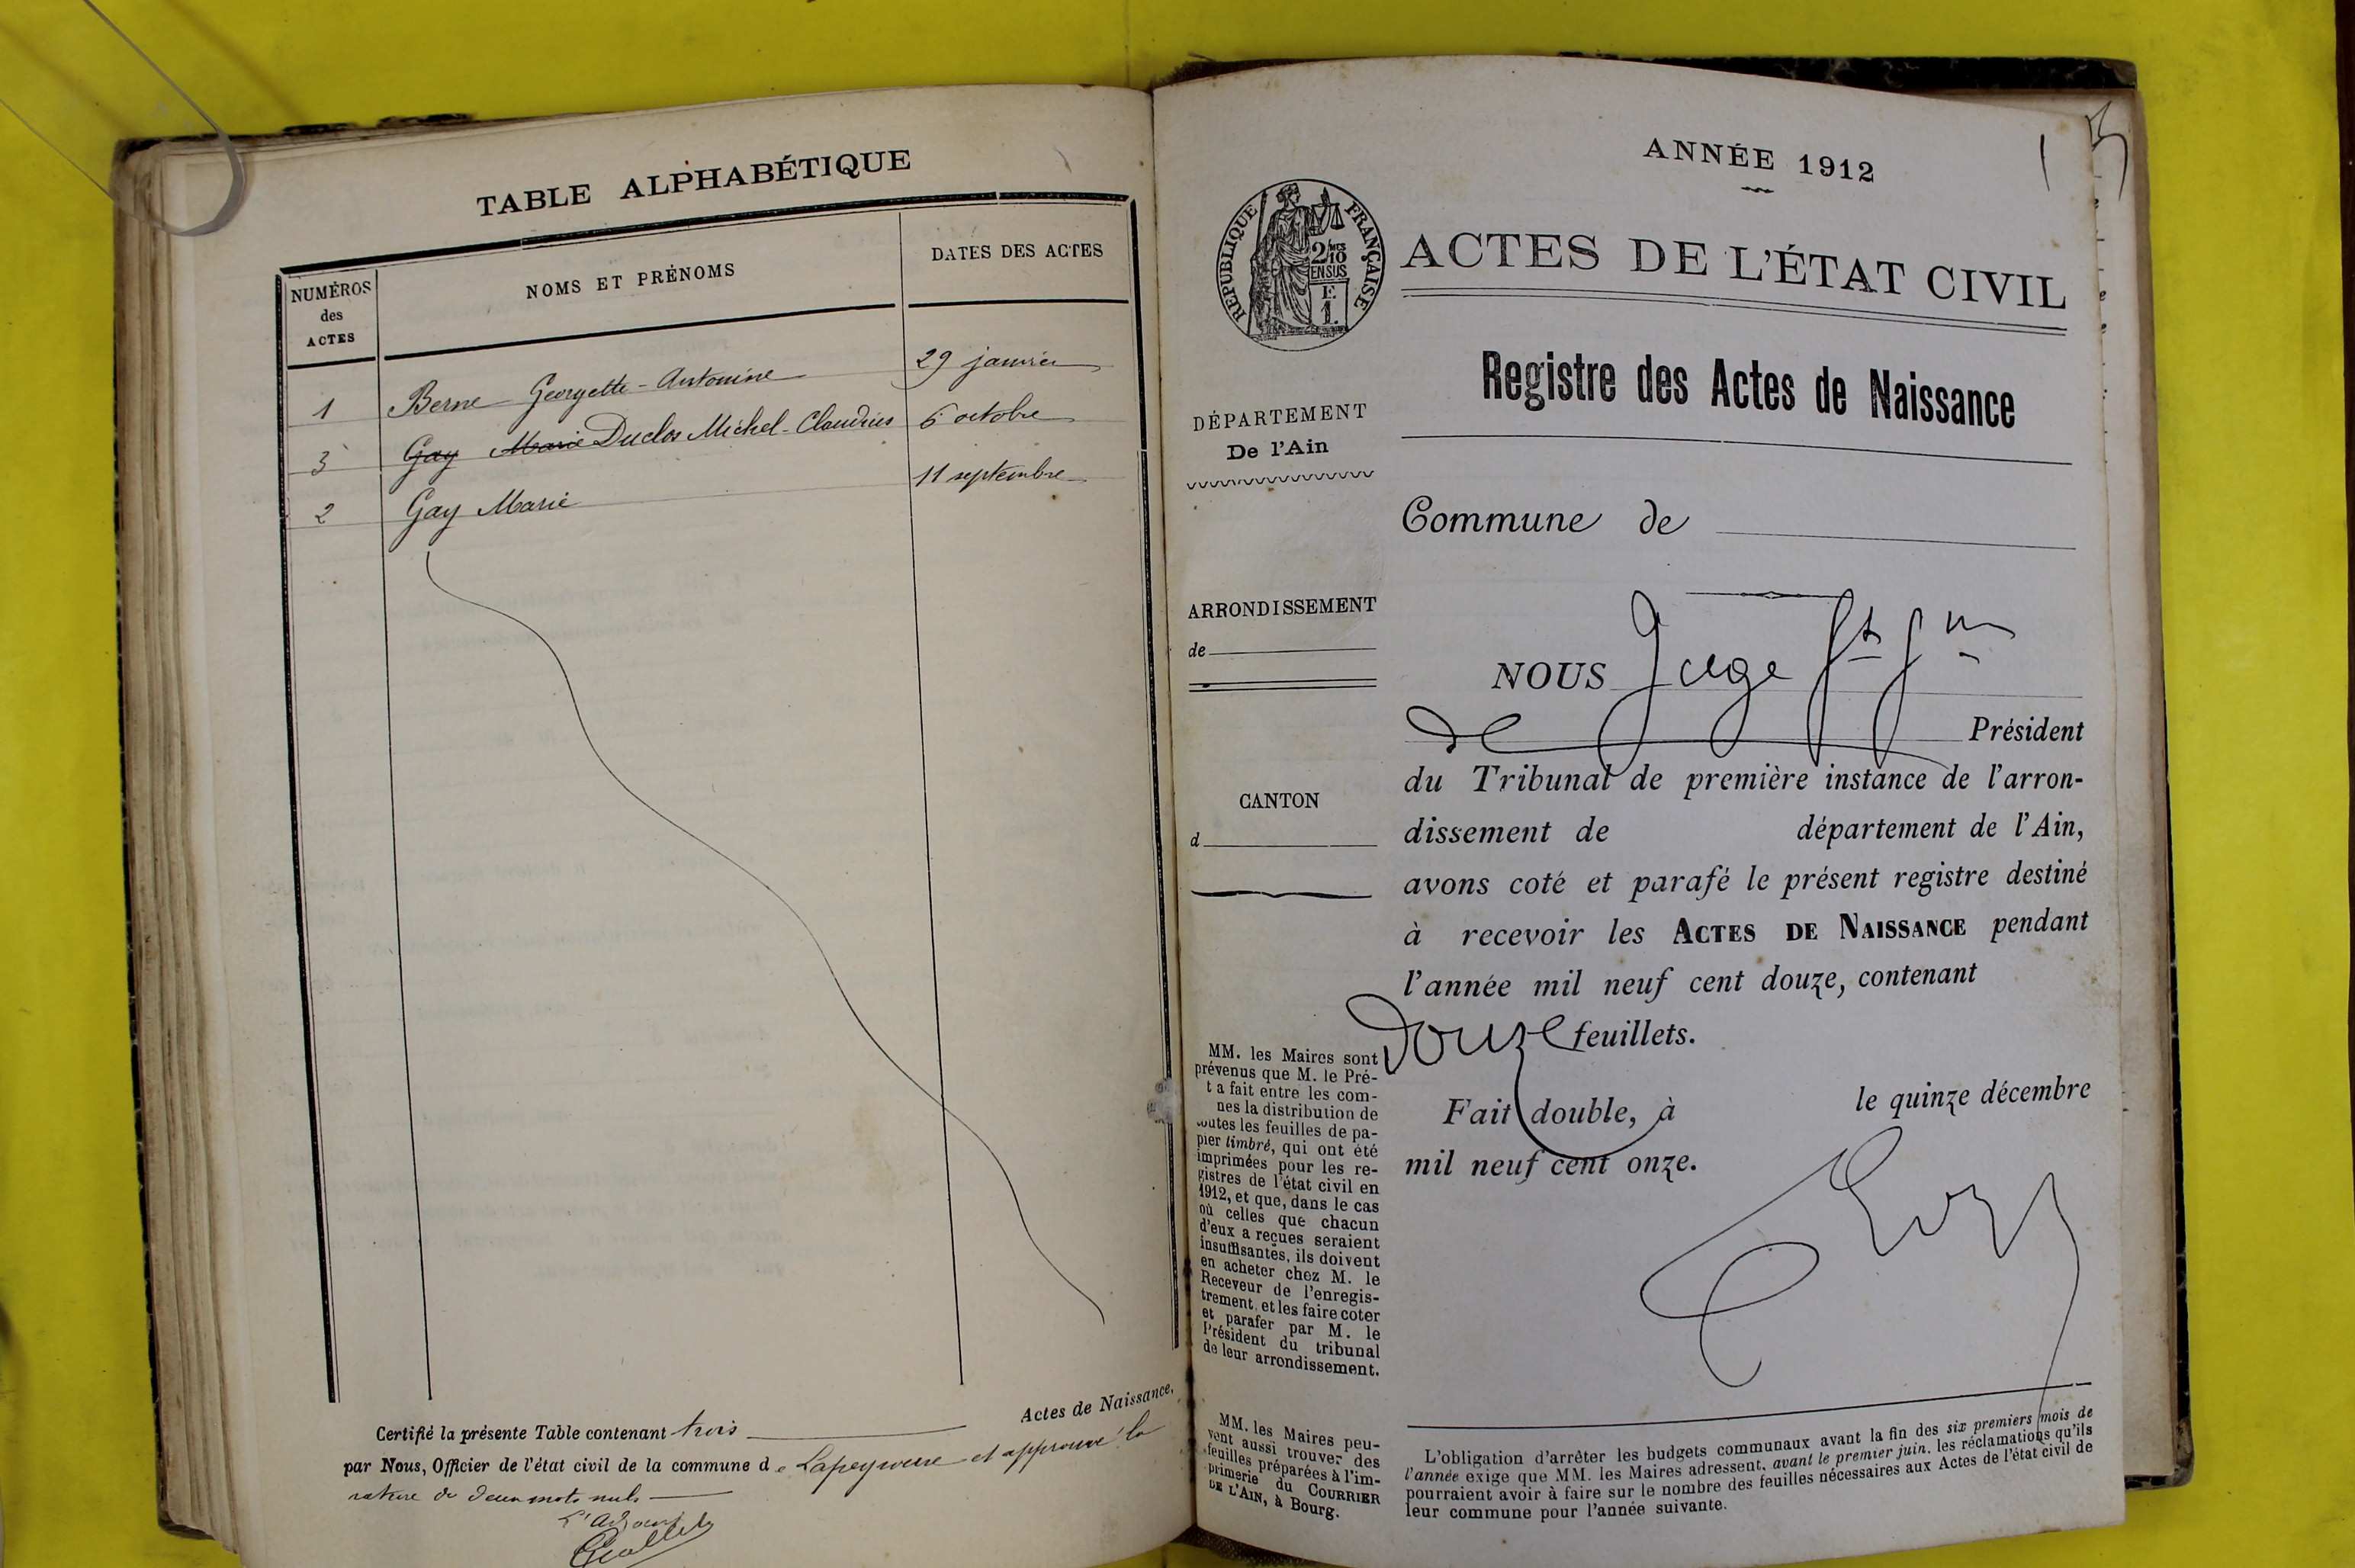 TABLE ALPHABÉTIQUE
NUMÉROS
des
ACTES
NOMS ET PRÉNOMS
DATES DES ACTES
1 Berne Georgette-Antonine 29 janvier
3 Gay Marie Duclos Michel-Claudius 6 octobre
2 Gay Marie 11 septembre
Certifié la présente Table contenant trois Actes de Naissance,
par Nous, Officier de l'état civil de la commune de Lapeyrouse et approuvé la
rature de deux mots nuls
L'Adjoint
ANNÉE 1912
1
ACTES DE L'ÉTAT CIVIL
RÉPUBLIQUE FRANÇAISE
2/10
EN SUS
E
1.
Registre des Actes de Naissance
DÉPARTEMENT
De l'Ain
Commune de
ARRONDISSEMENT
de
CANTON
d
NOUS Juge
de Président
du Tribunal de première instance de l'arron-
dissement de département de l'Ain,
avons coté et parafé le présent registre destiné
à recevoir les ACTES DE NAISSANCE pendant
l'année mil neuf cent douze, contenant
Douze feuillets.
Fait double, à le quinze décembre
mil neuf cent onze.
MM. les Maires sont
prévenus que M. le Pré-
t a fait entre les com-
nes la distribution de
outes les feuilles de pa-
pier timbré, qui ont été
imprimées pour les re-
gistres de l'état civil en
1912, et que, dans le cas
où celles que chacun
d'eux a reçues seraient
insuffisantes, ils doivent
en acheter chez M. le
Receveur de l'enregis-
trement, et les faire coter
et parafer par M. le
Président du tribunal
de leur arrondissement.
MM. les Maires peu-
vent aussi trouver des
feuilles préparées à l'im-
primerie du COURRIER
DE L'AIN, à Bourg.
L'obligation d'arrêter les budgets communaux avant la fin des six premiers mois de
l'année exige que MM. les Maires adressent, avant le premier juin, les réclamations qu'ils
pourraient avoir à faire sur le nombre des feuilles nécessaires aux Actes de l'état civil de
leur commune pour l'année suivante.